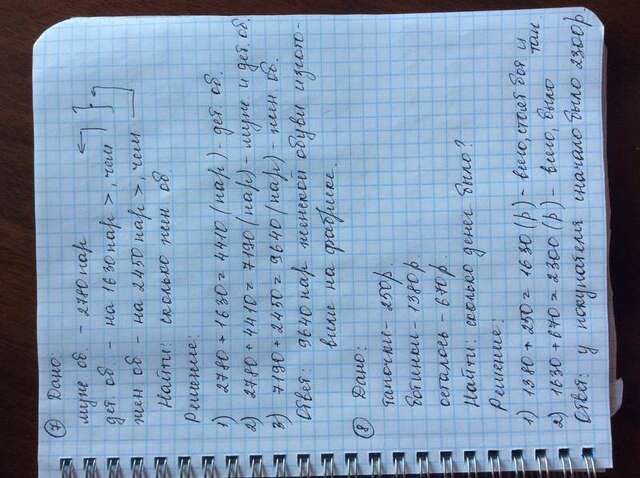 7) Дано:
муж об. - 2780 пар
дет об - на 1630 пар >, чем
жен об - на 2450 пар >, чем
Найти: сколько жен об
Решение:
1) 2780 + 1630 = 4410 (пар) - дет об.
2) 2780 + 4410 = 7190 (пар) - муж и дет об.
3) 7190 + 2450 = 9640 (пар) - жен об.
Ответ: 9640 пар женской обуви изгото-
вили на фабрике.
8) Дано:
Тапочки - 250 р.
Ботинки - 1380 р.
осталось - 670 р.
Найти: сколько денег было?
Решение:
1) 1380 + 250 = 1630 (р) - всего, стоят бот и
тап
2) 1630 + 670 = 2300 (р) - всего, было
Ответ: у покупателя сначало было 2300 р